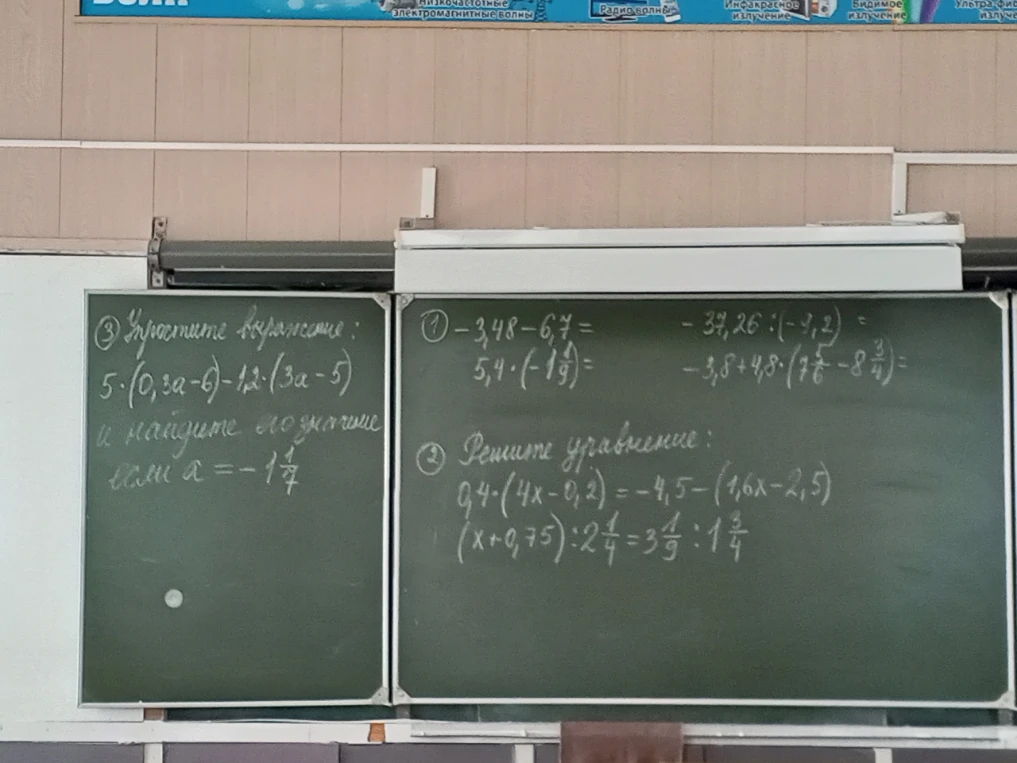 Низкочастотные
электромагнитные волны
Радиоволны
Инфакрасное
излучение
Видимое
излучение
③ Упростите выражение:
5·(0,3a-6)-1,2·(3a-5)
и найдите его значение
если a = -1 1/7
① -3,48-6,7=
-37,26:(-9,2) =
5,4·(-1 1/9)=
-3,8+4,8·(7 5/6-8 3/4)=
② Решите уравнение:
0,4·(4x-0,2)=-4,5-(1,6x-2,5)
(x+0,75):2 1/4=3 1/9:1 3/4